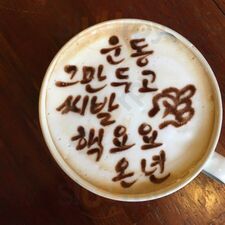 운동
그만두고
씨발
핵요요
온년